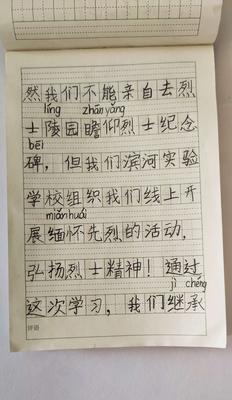 然我们不能亲自去烈
líng zhānyǎng
士陵园瞻仰烈士纪念
bēi
碑，但我们滨河实验
学校组织我们线上开
miǎnhuái
展缅怀先烈的活动，
弘扬烈士精神！通过
jì chéng
这次学习，我们继承
评语